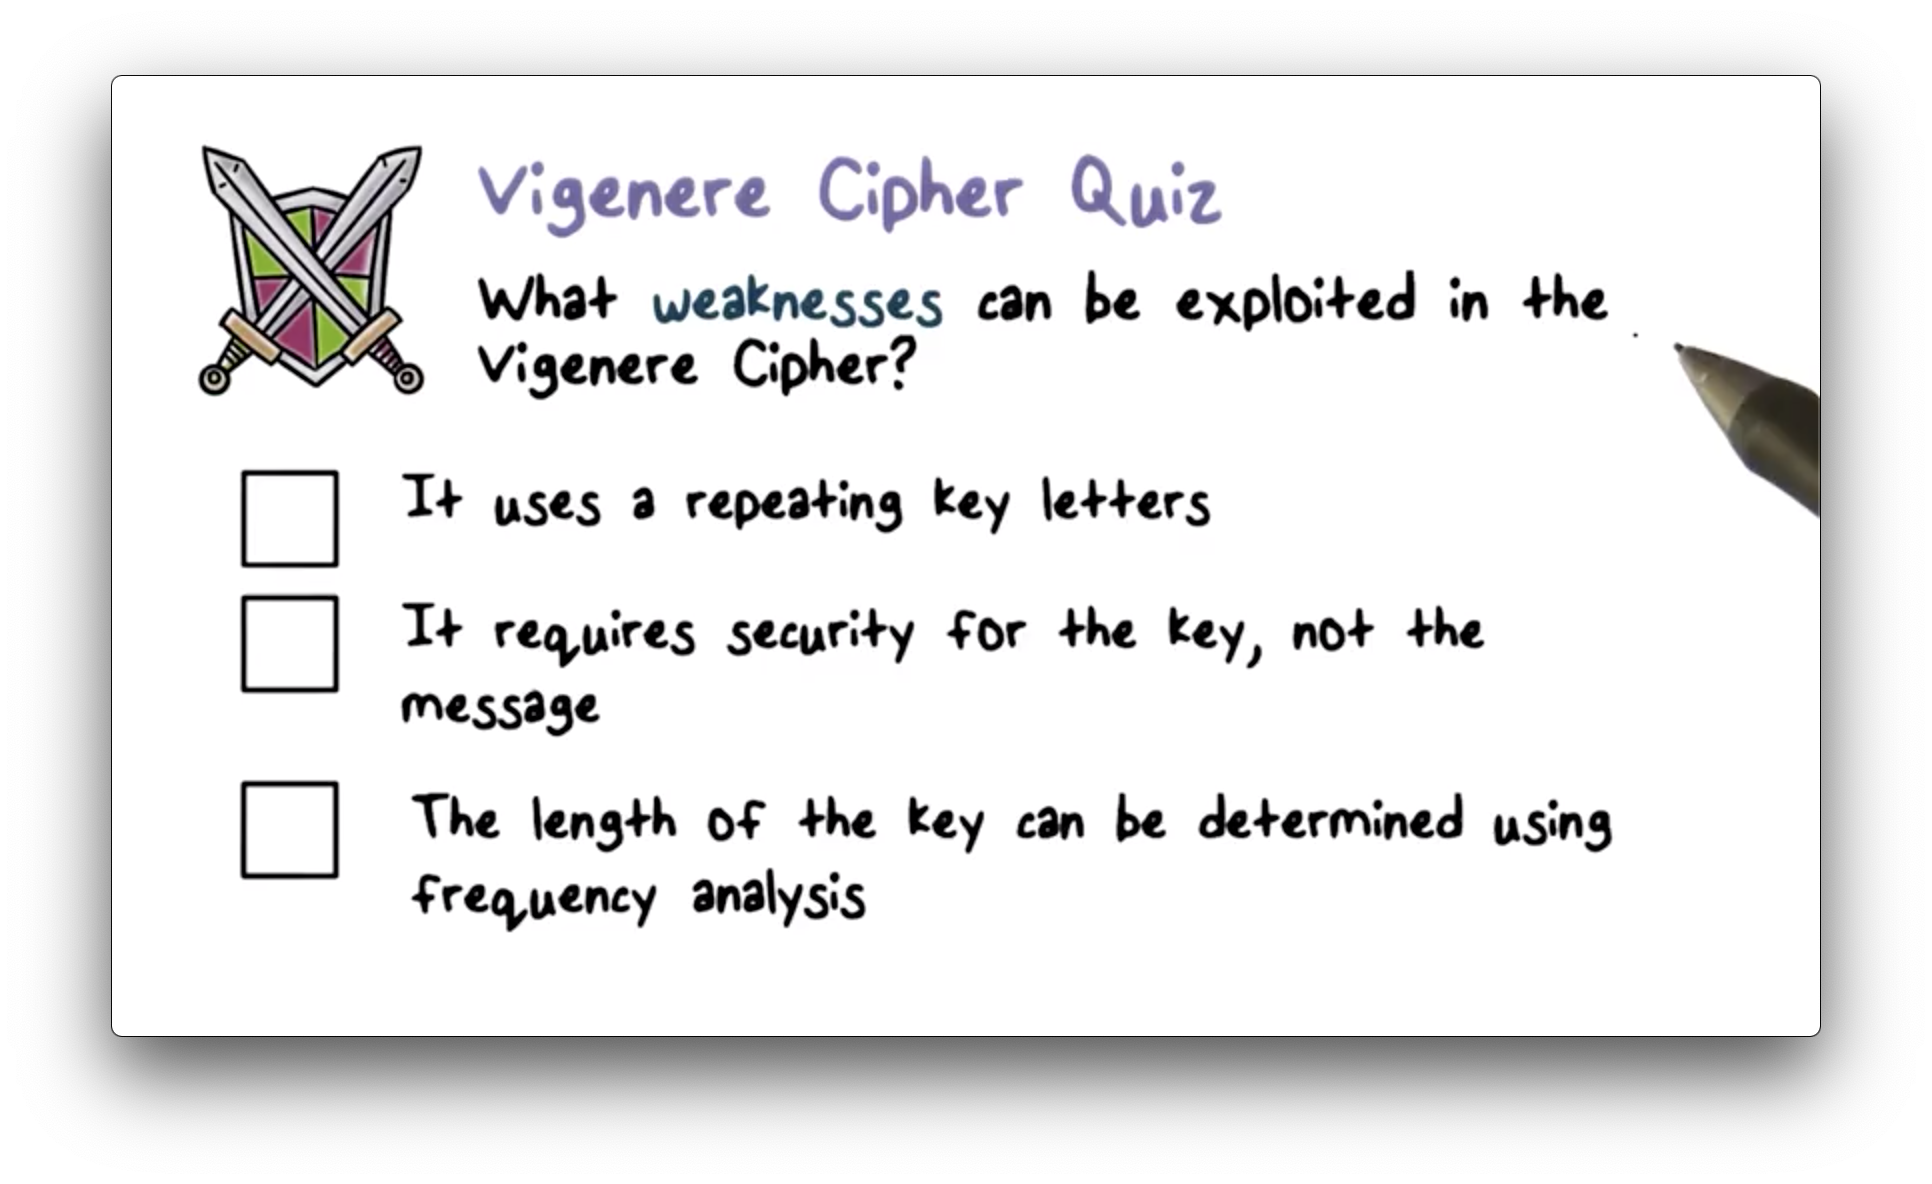 Vigenere Cipher Quiz
What weaknesses can be exploited in the
Vigenere Cipher?
It uses a repeating key letters
It requires security for the key, not the
message
The length of the key can be determined using
frequency analysis